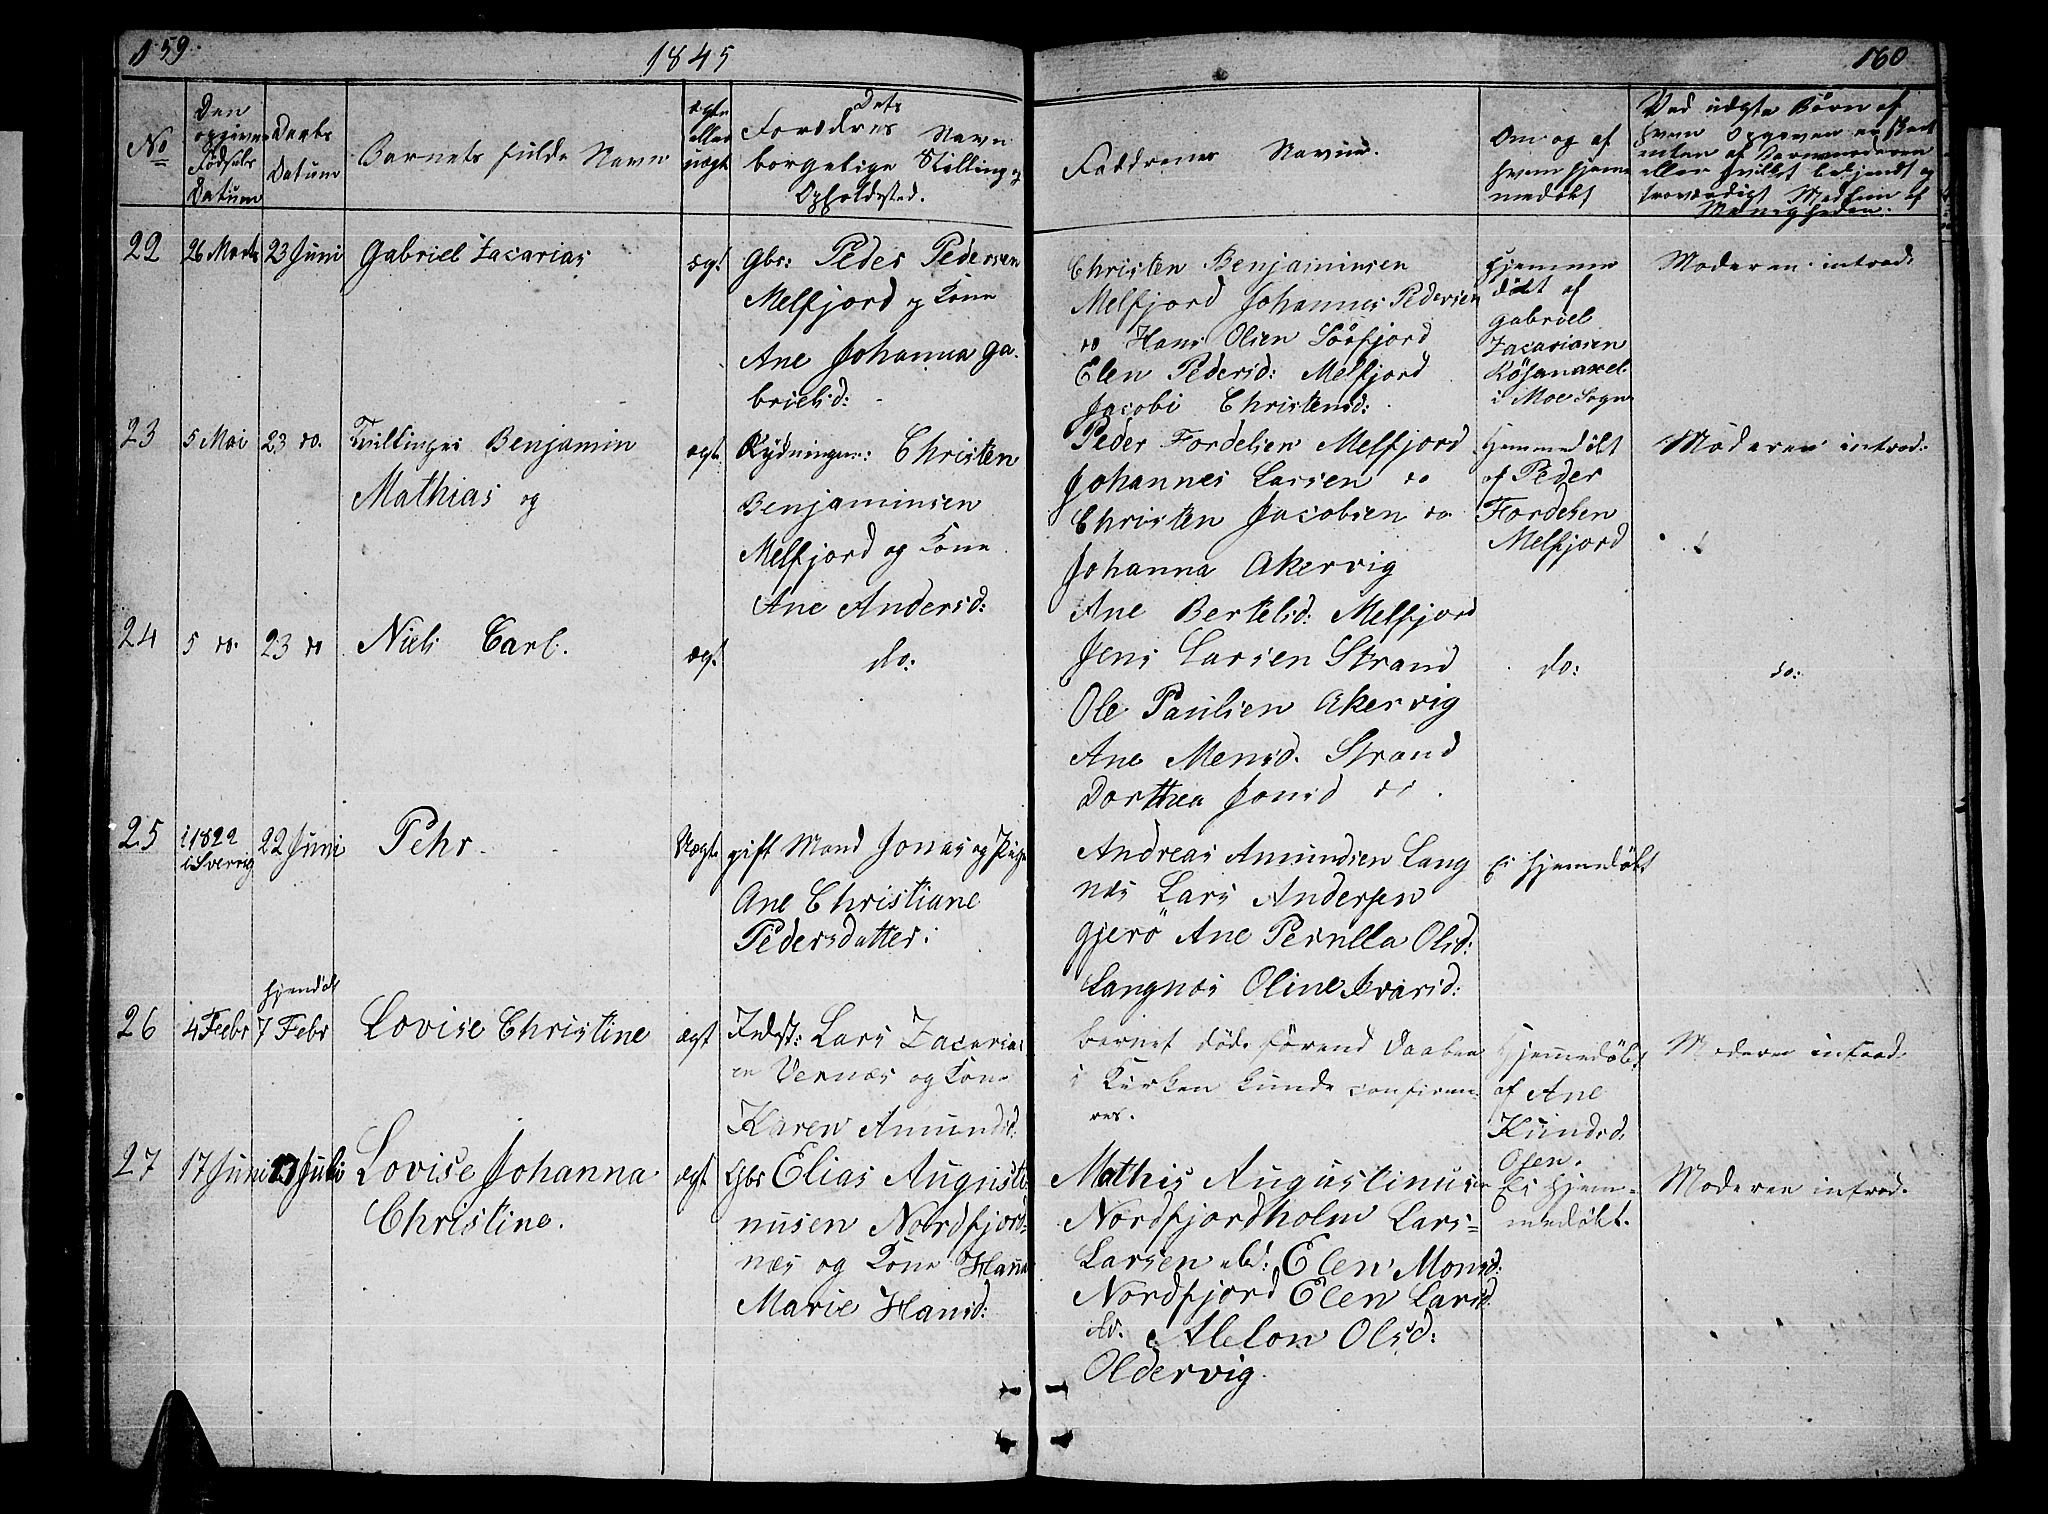 159.
1845
160
No
Den opgivne Fødsels Datum
Daabs Datum
Barnets fulde Navn
ægte eller uægt
Dets Forældres Navn Stilling og borgelige Opholdssted.
Faddrenes Navne.
Om og af hvem hjemmedøbt
Ved uægte Børn af hvem Opgaven er skeet enten af Barnemoderen eller hvilket bekjendt og troværdigt Medlem af Menigheden.
22
26 Marts
23 Juni
Gabriel Zacarias
ægt
Gbr: Peder Pedersen
Melfjord og Kone
Ane Johanna Ga-
brielsd:
Christen Benjaminsen
Melfjord Johannes Pedersen
do Hans Olsen Sörfjord
Elen Pedersd: Melfjord
Jacobi Christensd:
hjemme
døbt af
Gabriel
Zacariasen
i Moe Sogn
Moderen introd:
23
5 Mai
23 do.
Tvillinger Benjamin
Mathias og
ægt.
Rydningsm: Christen
Benjaminsen
Melfjord og Kone
Ane Andersd:
Peder Fordelsen Melfjord
Johannes Larsen do
Christen Jacobsen do
Johanna Akervig
Ane Bertelsd: Melfjord
Hjemmedøbt
af Peder
Fordelsen
Melfjord
Moderen introd:
24
5 do.
23 do
Niels Carl.
ægt
do:
Jens Larsen Strand
Ole Paulsen Akervig
Ane Monsd. Strand
Dorthea Jonsd do.
do:
do:
25
i 1822
i Sverrig
22 Juni
Pehr
Uægte
gift Mand Jonas og Pige
Ane Christiane
Pedersdatter:
Andreas Amundsen Lang
næs Lars Andersen
Gjerö Ane Pernilla Olsd:
Langnæs Oline Ivarsd:
Ei hjemedøbt
26
4 Febr
hjemdøbt
7 Febr
Lovise Christine
ægt
Indst: Lars Zacarias
en Vernæs og Kone
Karen Amundsd:
barnet døde förend Daaben
i Kirken kunde confirme
res.
Hjemmedøbt
af Ane
Knudsd.
Moderen introd.
27
17 Juni
13 Juli
Lovise Johanna
Christine.
ægt
Gbr Elias Augusti
nusen Nordfjord-
næs og Kone Hanna
Marie Hansd:
Mathis Augustinusen
Nordfjordholm Lars
Larsen ibd: Elen Monsd:
Nordfjord Elen Larsd:
do. Aleton Olsd:
Oldervig.
Ei hjem-
medøbt.
Moderen introd.